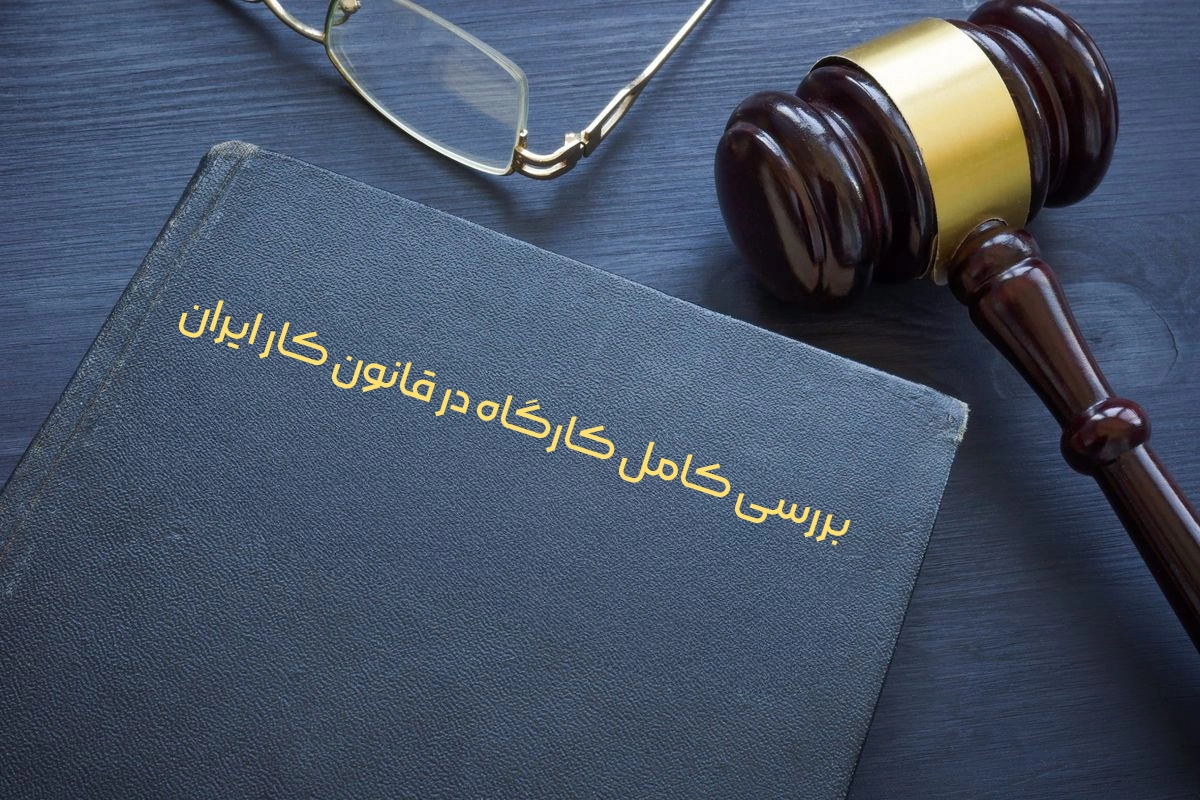 بررسی کامل کارگاه در قانون کار ایران